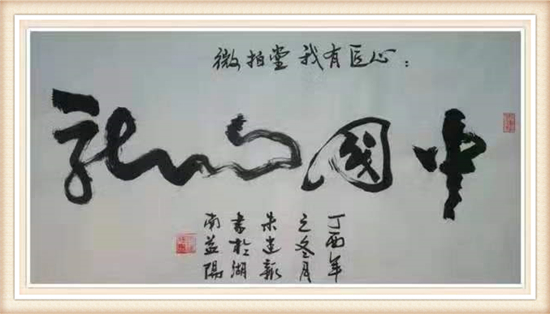 微拍堂我有匠心：
中國的龍
丁酉年
之冬月
朱建新
書於湖
南益陽